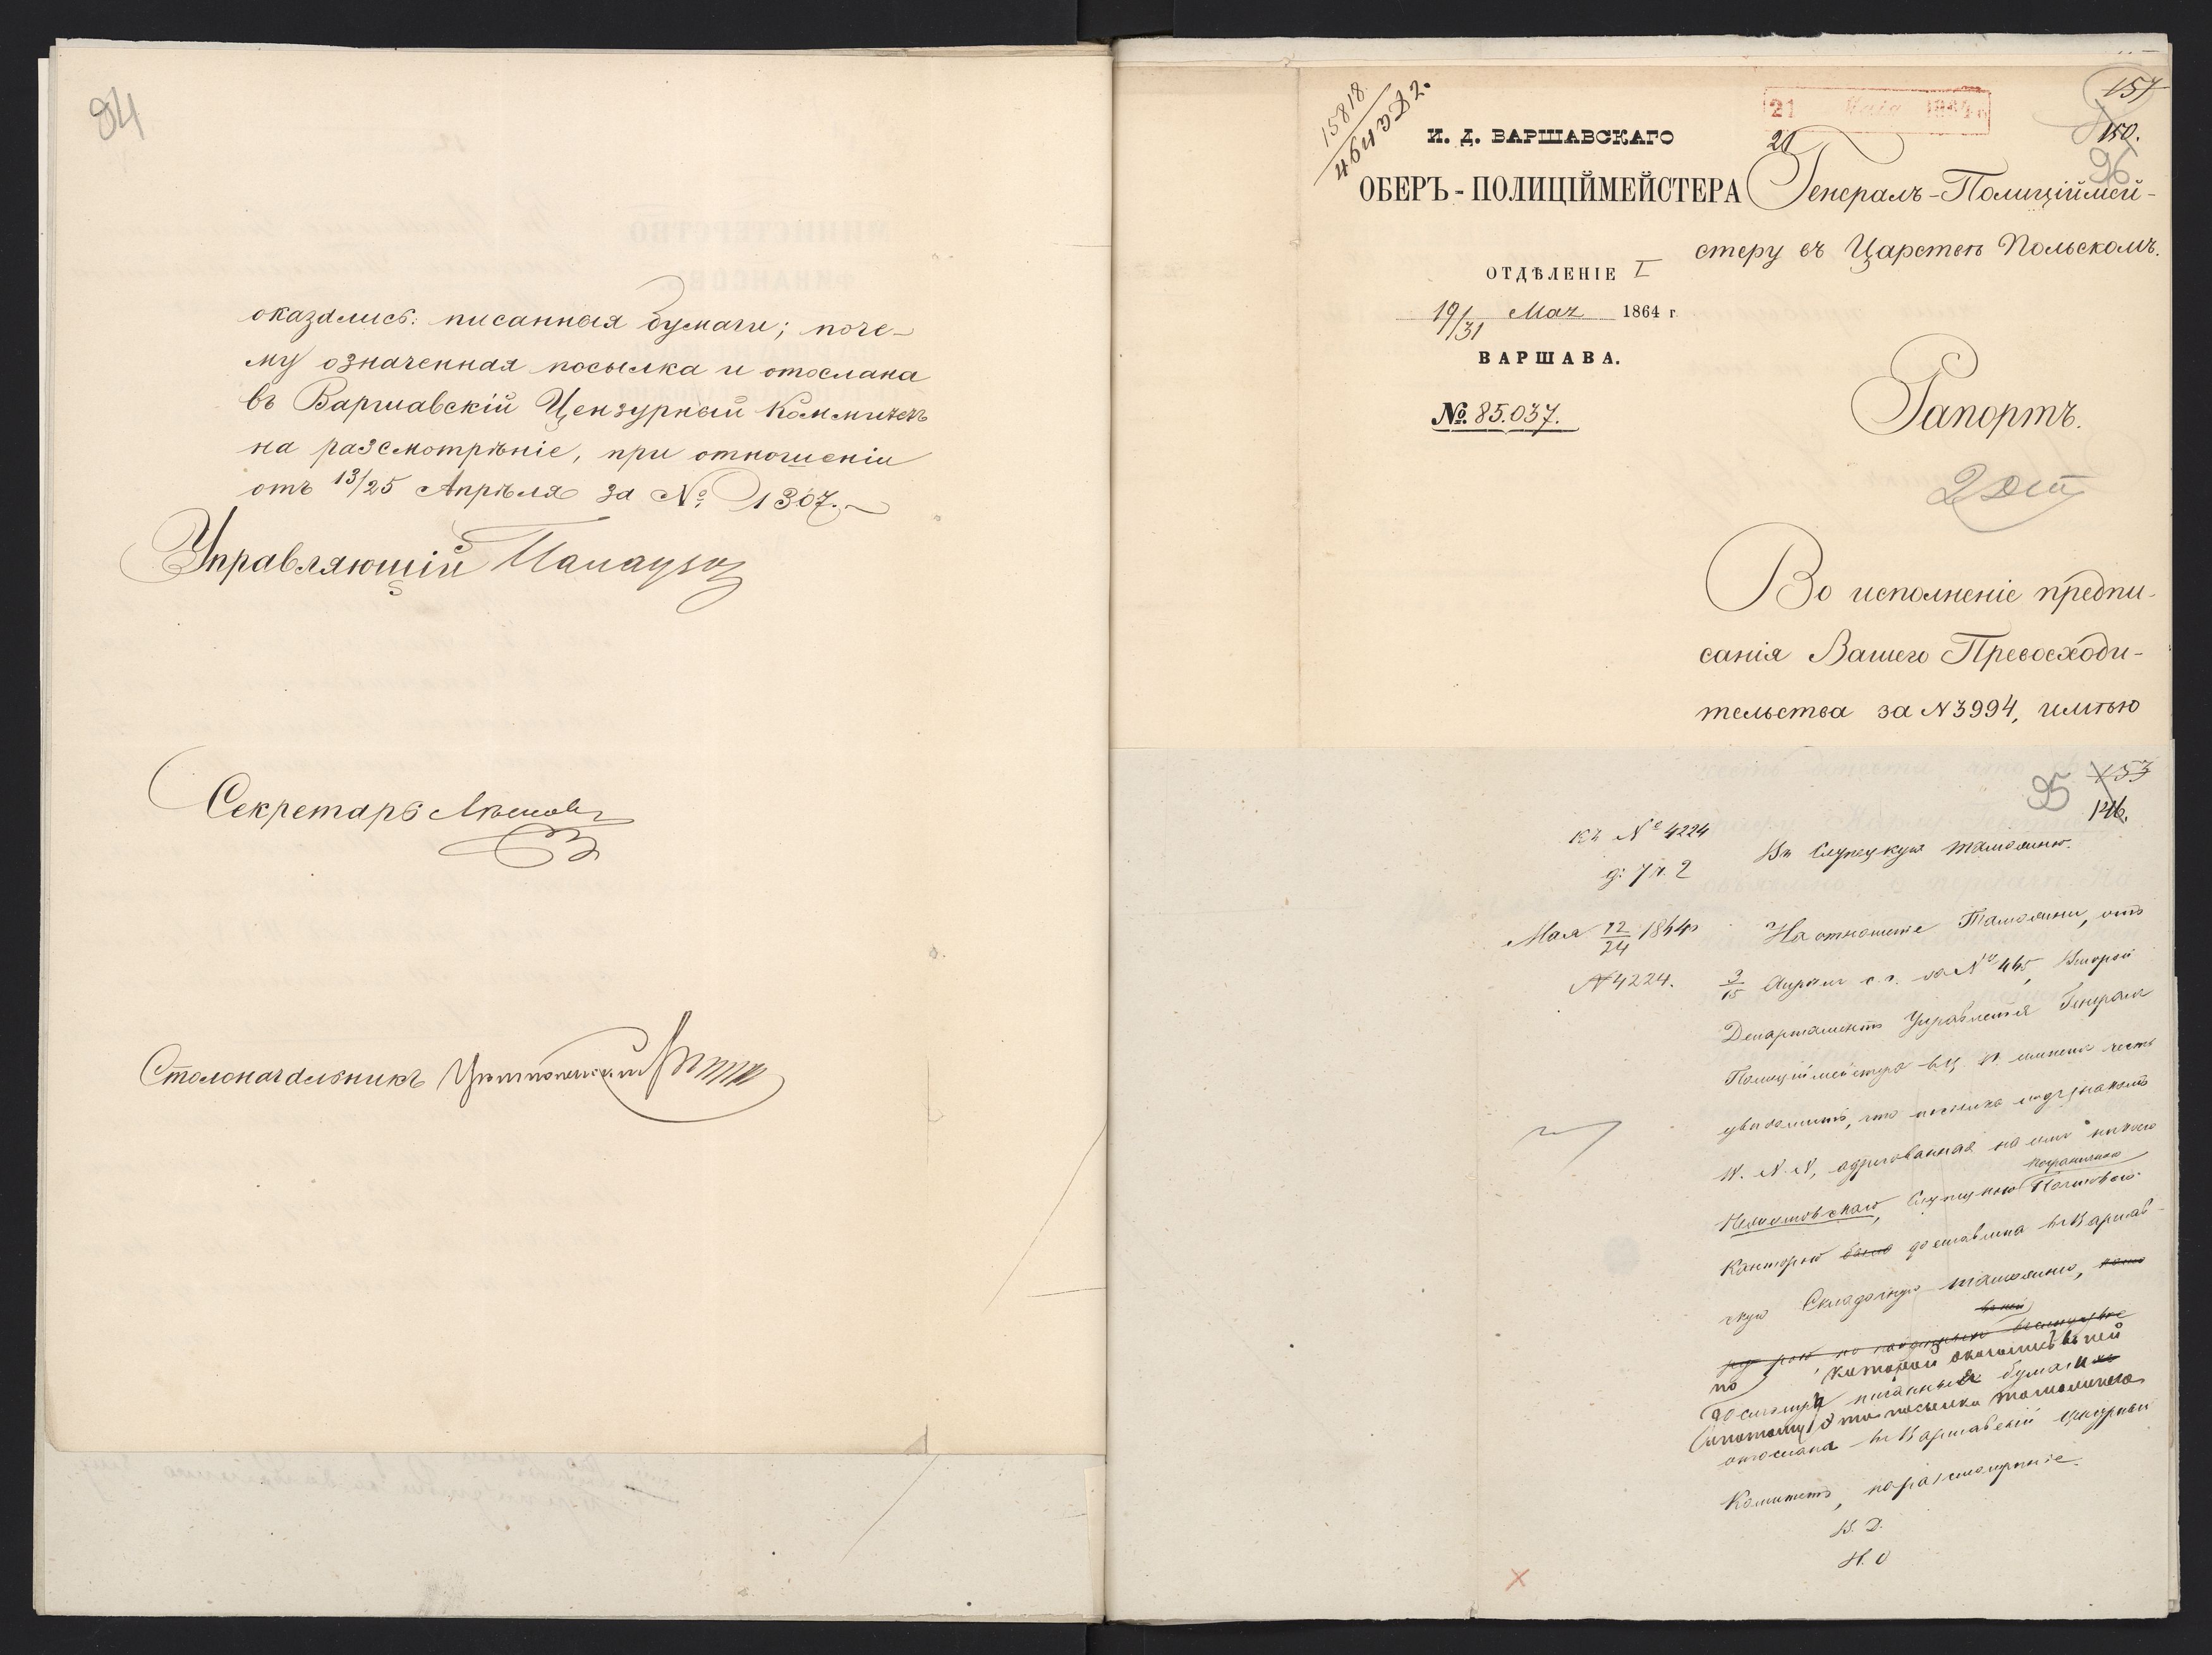 84
оказались: писанныя бумаги; поче-
му означенная посылка и отослана
въ Варшавскій Цензурный Коммитетъ
на разсмотрѣніе, при отношеніи
отъ 13/25 Апрѣля за № 1307.
Управляющій
Секретарь
Столоначальникъ
15818
21 Мая 1864
157
150.
96
И. Д. ВАРШАВСКАГО
ОБЕРЪ-ПОЛИЦІЙМЕЙСТЕРА
ОТДѢЛЕНІЕ I
19/31 Мая 1864 г
ВАРШАВА.
№ 85.037.
20
Генералъ-Полиціймей-
стеру въ Царствѣ Польскомъ.
Рапортъ.
Во исполненіе предпи-
санія Вашего Превосходи-
тельства за N 3994, имѣю
95
153
146.
къ № 4224
д: 7 ч. 2
Мая 12/24 1864
N 4224.
Въ Слупецкую таможню.
На отношеніе Таможни, отъ
3/15 Апрѣля с. г. за № 445, Второй
Департаментъ Управленія Генералъ
Полиціймейстера въ Ц. П. имѣетъ честь
увѣдомить, что посылка подъ знакомъ
N. N, адресованная на имя
Слупецкою Пограничною Почтовою
Конторою было доставлена въ Варшав-
скую Складочную таможню,
по
которой оказались въ ней
досмотрѣ писанныя бумаги
потому эта посылка таможнею
отослана въ Варшавскій Цензурный
Комитетъ, на разсмотрѣніе.
В. Д.
Н. О